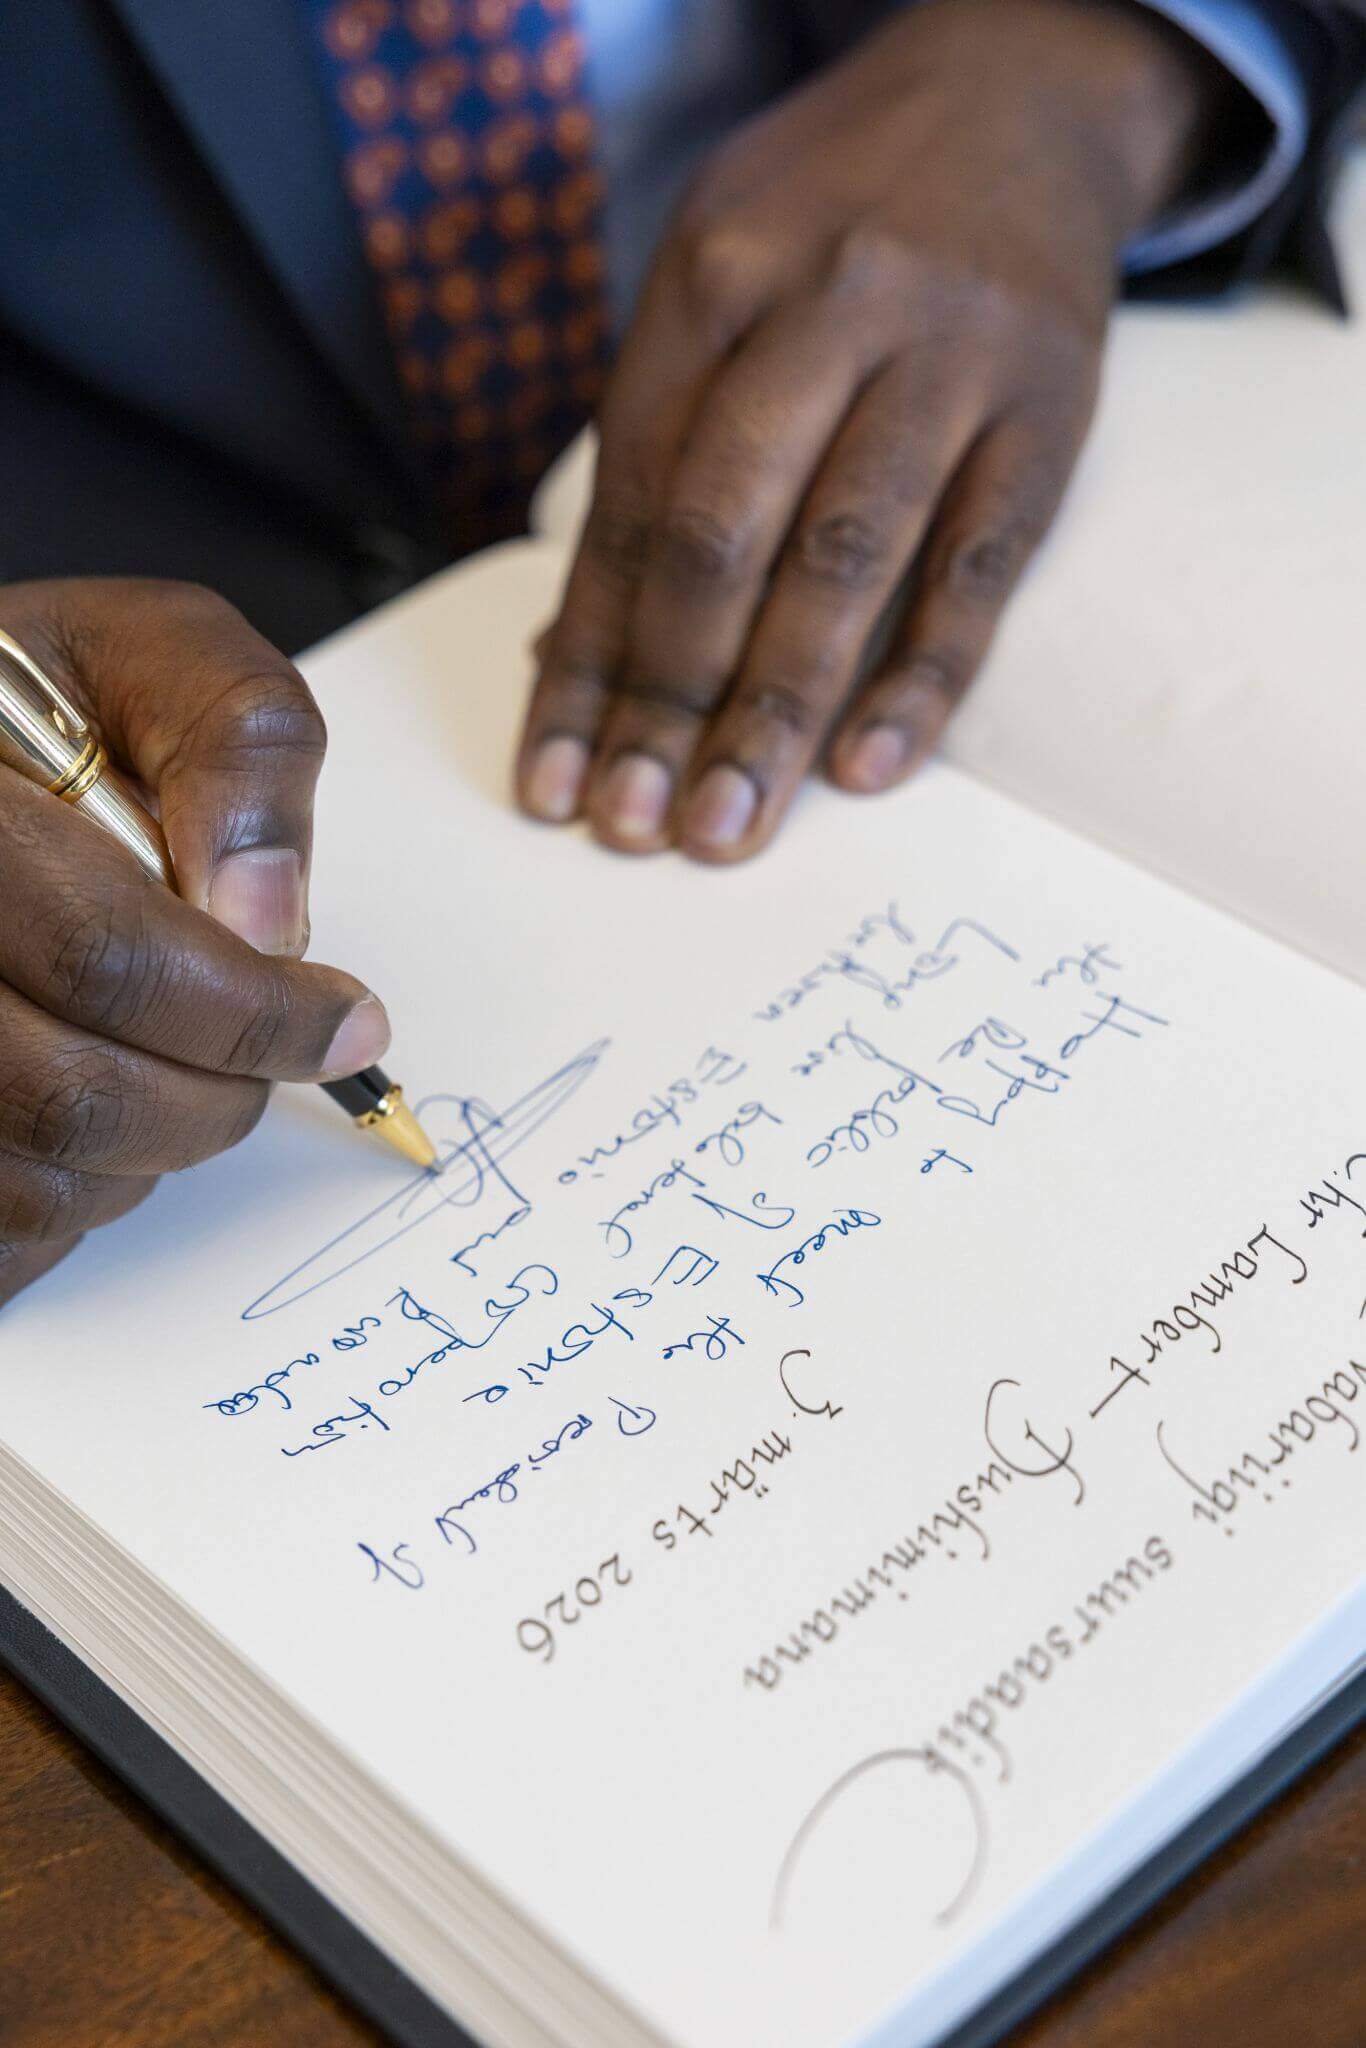 Vabariigi suursaadik
Chr Lambert Dushimimana
3. märts 2026
Happy to meet the President of
the Republic of Estonia
Long live bilateral Cooperation
between Estonia and Rwanda